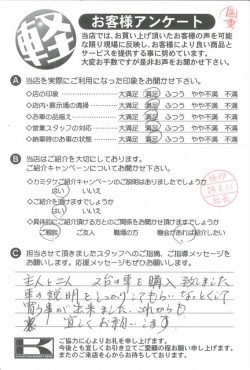 軽
お客様アンケート
当店では、お買い上げ頂いたお客様の声を可能
な限り現場に反映し、お客様により良い商品と
サービスを提供する事に努めています。
大変お手数ですが是非お声をお聞かせ下さい。
A 当店を実際にご利用になった印象をお聞かせ下さい。
◇店の印象 大満足 満足 ふつう やや不満 不満
◇店内・展示場の清掃 大満足 満足 ふつう やや不満 不満
◇お車の品揃え 大満足 満足 ふつう やや不満 不満
◇営業スタッフの対応 大満足 満足 ふつう やや不満 不満
◇納車時のお車の状態 大満足 満足 ふつう やや不満 不満
B 当店はご紹介を大切にしております。
ご紹介キャンペーンについてお聞かせ下さい。
◇カミタケご紹介キャンペーンのご説明はありましたでしょうか
はい いいえ
◇ご紹介を頂けますでしょうか
はい いいえ
◇具体的にご紹介頂ける方とのご関係をお聞かせ頂けますでしょうか
ご親戚 ご友人 職場の方 機会があれば紹介したい
C 担当させて頂きましたスタッフへのご指摘、ご指導メッセージを
お願いします。応援メッセージもぜひお願いします。
主人と二人 2台の車を購入致しました
車の説明をしっかりしてもらいなっとくして
買う事が出来ました。これからも
宜しくお願いします
K
ご協力に心よりお礼を申し上げます。
今後とも宜しくお引き立てご愛顧の程お願い申し上げます。
またのご来店を心からお待ちしております。